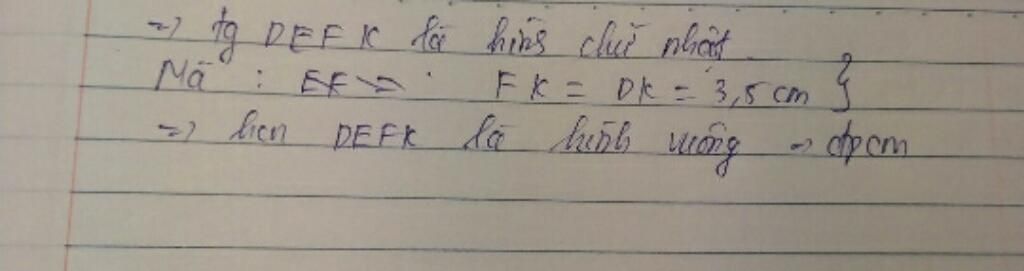 => tg DEFK là hình chữ nhật
Mà : FK = DK = 3,5 cm }
=> hcn DEFK là hình vuông -> đpcm